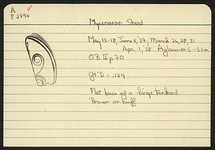 A
P 2792
Mycenaean Sherd
May 15-18, June 5, '37, March 26, 28, 31
Apr. 1, '38 Aglaurion S-Som.
O.B. II p. 70
Gr. D = .124
Flat base of a large tankard
Brown on buff